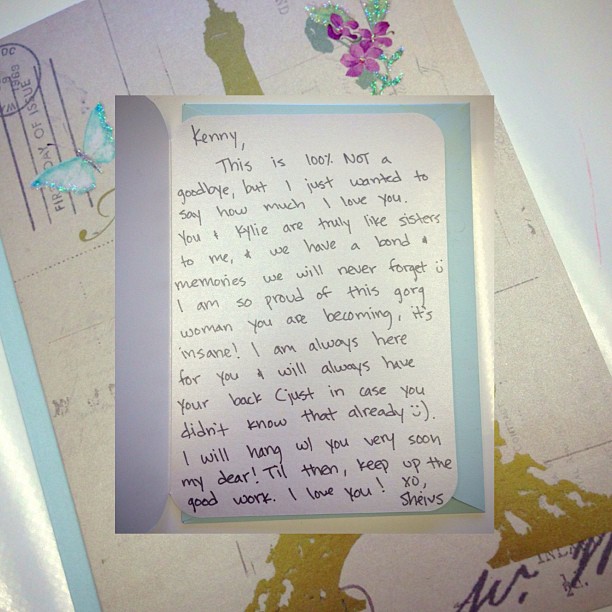 Kenny,
This is 100% NOT a
goodbye, but I just wanted to
say how much I love you.
You & Kylie are truly like sisters
to me, & we have a bond &
memories we will never forget :)
I am so proud of this gorg
woman you are becoming, it's
insane! I am always here
for you & will always have
your back (just in case you
didn't know that already :)).
I will hang w/ you very soon
my dear! Til then, keep up the
good work. I love you! xo,
Sheius
FIRST DAY OF ISSUE